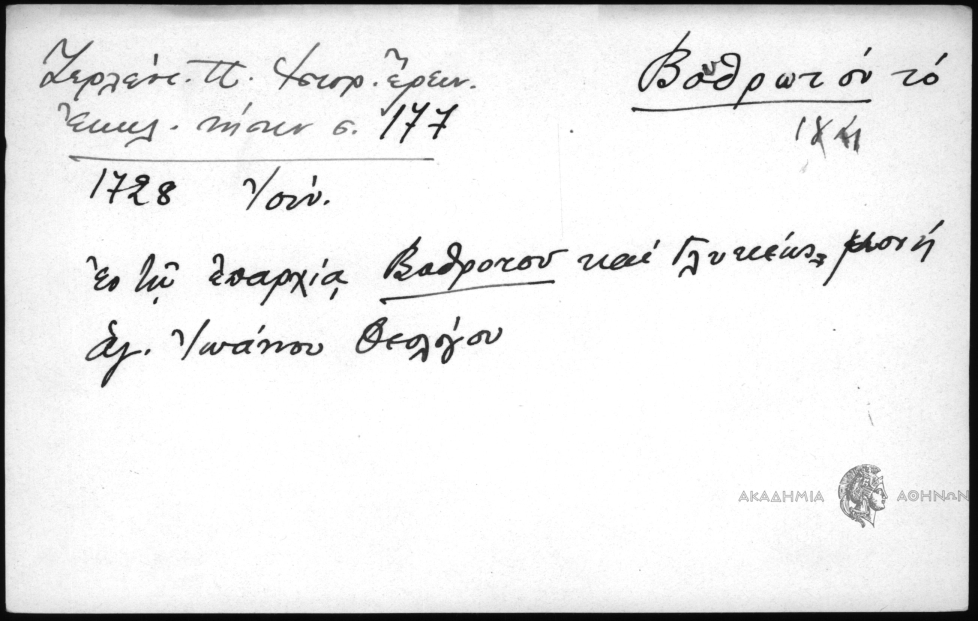 Ζερλέντ. Π. Ἱστορ. Ἔρευν.
Ἐκκλ. νήσων σ. 177
Βουθρωτόν τό
1728 Ἰούν.
Ἐν τῇ ἐπαρχίᾳ Βοθροτοῦ καὶ Γλυκέως μονή
ἁγ. Ἰωάννου Θεολόγου
ΑΚΑΔΗΜΙΑ ΑΘΗΝΩΝ